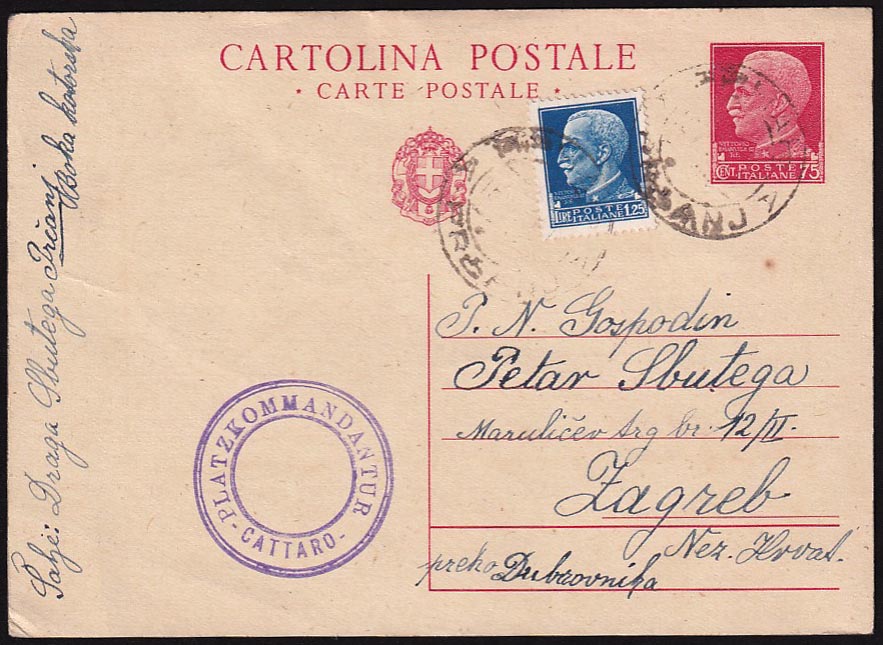 CARTOLINA POSTALE
* CARTE POSTALE *
VITTORIO EMANUELE III
POSTE ITALIANE
CENT. 75
POSTE ITALIANE
LIRE 1,25
P. N. Gospodin
Petar Sbutega
Marulićev trg br. 12/II.
Zagreb
Nez. Hrvat.
preko Dubrovnika
PLATZKOMMANDANTUR
-CATTARO-
Šalje: Draga Sbutega Prčanj
Boka kotorska